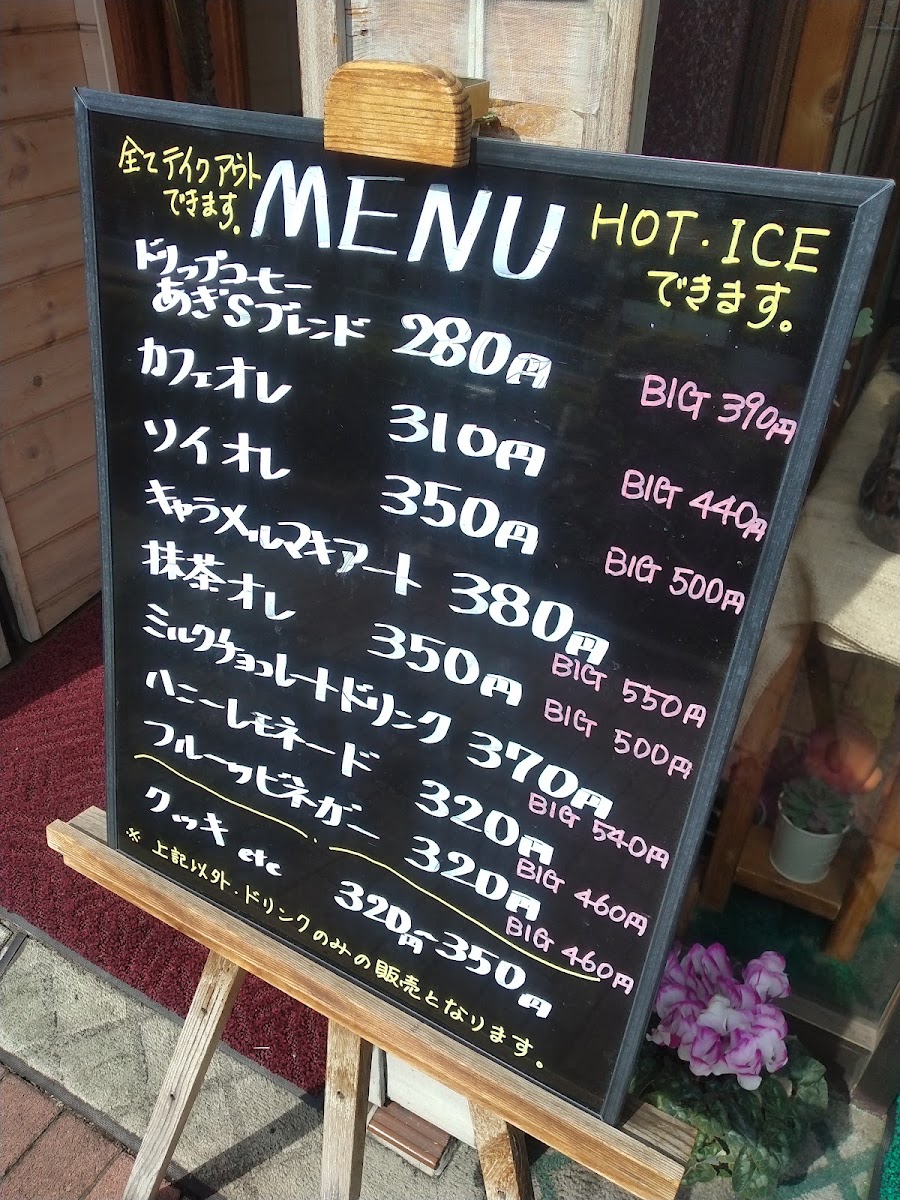 全てテイクアウト
できます。
MENU
HOT・ICE
できます。
ドリップコーヒー
あぎ'Sブレンド 280円 BIG 390円
カフェオレ 310円 BIG 440円
ソイオレ 350円 BIG 500円
キャラメルマキアート 380円 BIG 550円
抹茶オレ 350円 BIG 500円
ミルクチョコレートドリンク 370円 BIG 540円
ハニーレモネード 320円 BIG 460円
フルーツビネガー 320円 BIG 460円
クッキ etc 320円〜350円
※上記以外・ドリンクのみの販売となります。